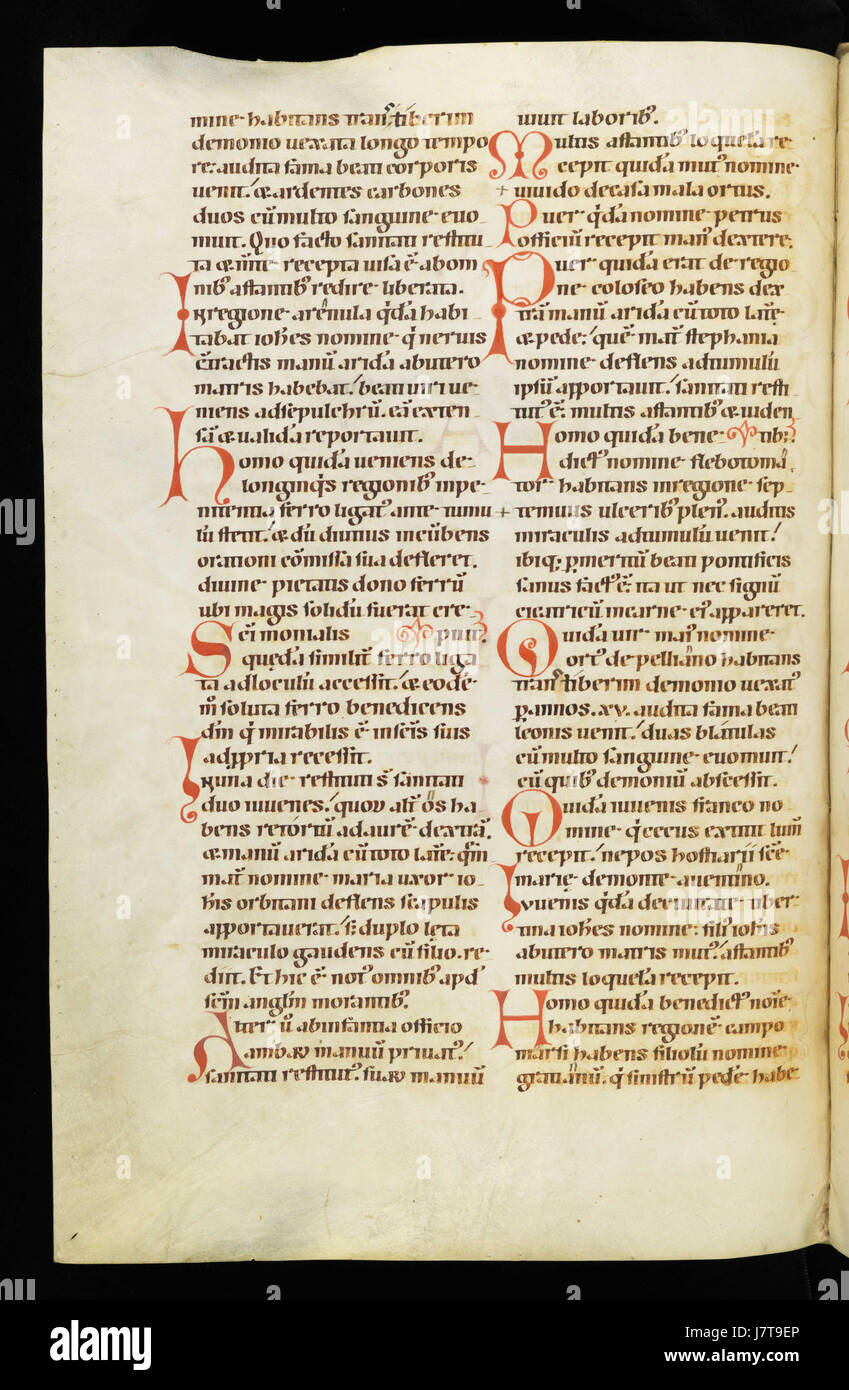 mine habitans tranſtiberim
demonio uexata longo tempo
re· audita fama beati corporis
uenit· & ardentes carbones
duos cũ multo ſanguine euo
muit. Quo facto ſanitati reſtitu
ta & m̅te recepta uiſa ẽ abom
nib' aſtantib' redire liberata.
IN regione arẽnula q̇dã habi
tabat ioħes nomine q̇ neruis
cõtractis manũ aridã ab utero
matris habebat. beati uiri ue
niens ad ſepulchrũ. eã exten
ſã & ualidã reportauit.
Homo quidã ueniens de
longinq̇s regionib' in pe
nitentia ferro ligat' ante tumu
lũ ſtetit. & dũ diutius incũbens
orationi cõmiſſa ſua defleret.
diuine pietatis dono ferrũ
ubi magis ſolidũ fuerat cre
puit.
Sc̅i monialis
quedã ſimilit̅ ferro liga
ta ad loculũ acceſſit. & eodẽ
m̊ ſoluta ferro benedicens
dñm q̇ mirabilis ẽ in ſc̅is ſuis
ad ꝓpria receſſit.
IN una die reſtituti s̅ ſanitati
duo iuuenes. quoꝝ alt̅ os ha
bens retortũ ad aurẽ dextrã.
& manũ aridã cũ toto lat̅e· quẽ
mat̅ nomine maria uxor io
ħis orbitani deflens ſcapulis
apportauerat. ſ; duplo lęta
miraculo gaudens cũ filio· re
diit. Et hic ẽ not' omnib' apd'
ſc̅m angl̅m morantib'.
Alter u̅ ab infantia officio
ambaꝝ manuũ priuat'.
ſanitati reſtitut'. ſuaꝝ manuũ
uiuit laborib'.
Multis aſtantib' loquelã re
cepit quidã mut' nomine
uuido de caſa mala ortus.
Puer q̇dã nomine petrus
officiũ recepit man' dextere.
Puer quidã erat de regio
ne coloſeo habens dex
trã manũ aridã cũ toto lat̅e
& pede. quẽ mat̅ ſtephania
nomine deflens ad tumulũ
ipſũ apportauit. ſanitati reſti
tut' ẽ multis aſtantib' & uiden
tib'.
Homo quidã bene
dict' nomine flebotoma
tor habitans in regione ſep
temuiis ulcerib' plen'. auditis
miraculis ad tumulũ uenit.
ibiq; ꝑ meritũ beati pontificis
ſanus fact' ẽ· ita ut nec ſignũ
cicatricũ in carne ei' appareret.
Quida uir mai' nomine
ort' de pelliano habitans
tranſtiberim demonio uexat'
ꝑ annos .xv. audita fama beati
leonis uenit. duas blãtulas
cũ multo ſanguine euomuit.
cũ quib' demoniũ abſceſſit.
Quidã iuuenis franco no
mine q̇ cecus extitit lum̅
recepit. nepos hoſtiarii ſc̅e
marię de monte auentino.
Iuuenis q̇dã de ciuitate tiber
tina ioħes nomine· fili' ioħis
ab utero matris mut'. aſtantib'
multis loquelã recepit.
Homo quidã benedict' noie
habitans regionẽ campo
marſi habens filiolũ nomine
gratianũ. q̇ ſiniſtrũ pedẽ habe
alamy
Image ID: J7T9EP
www.alamy.com